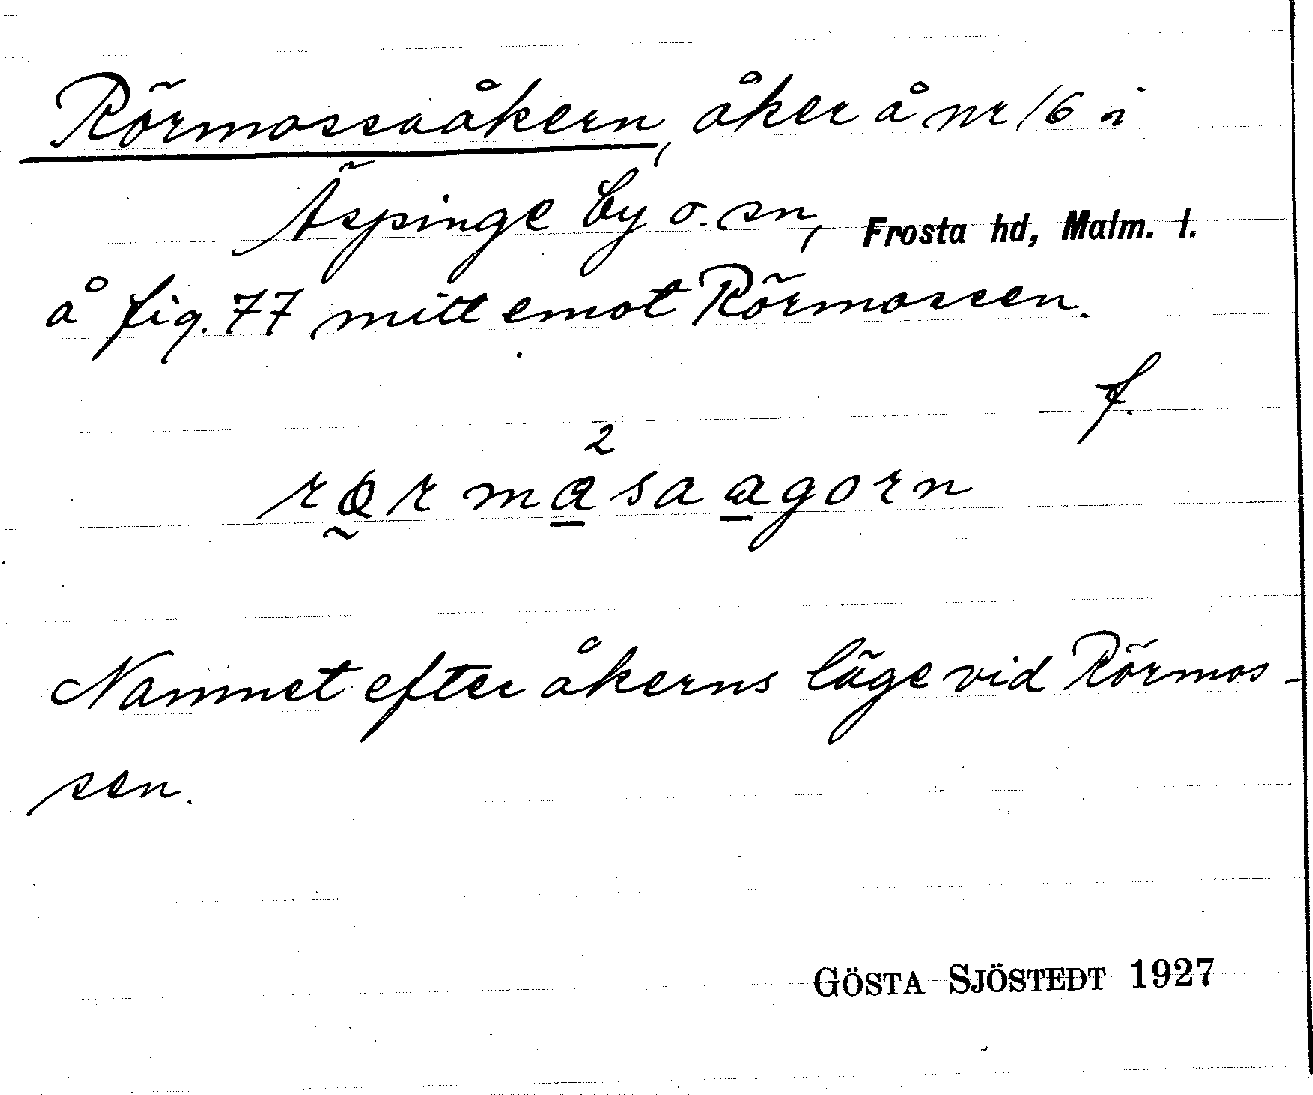 Rörmossaåkern, åker å nr 16 i
Äspinge by o. sn, Frosta hd, Malm. l.
å fig. 77 mitt emot Rörmossen.
f.
2
rørmasaagorn
Namnet efter åkerns läge vid Rörmos-
sen.
GÖSTA SJÖSTEDT 1927